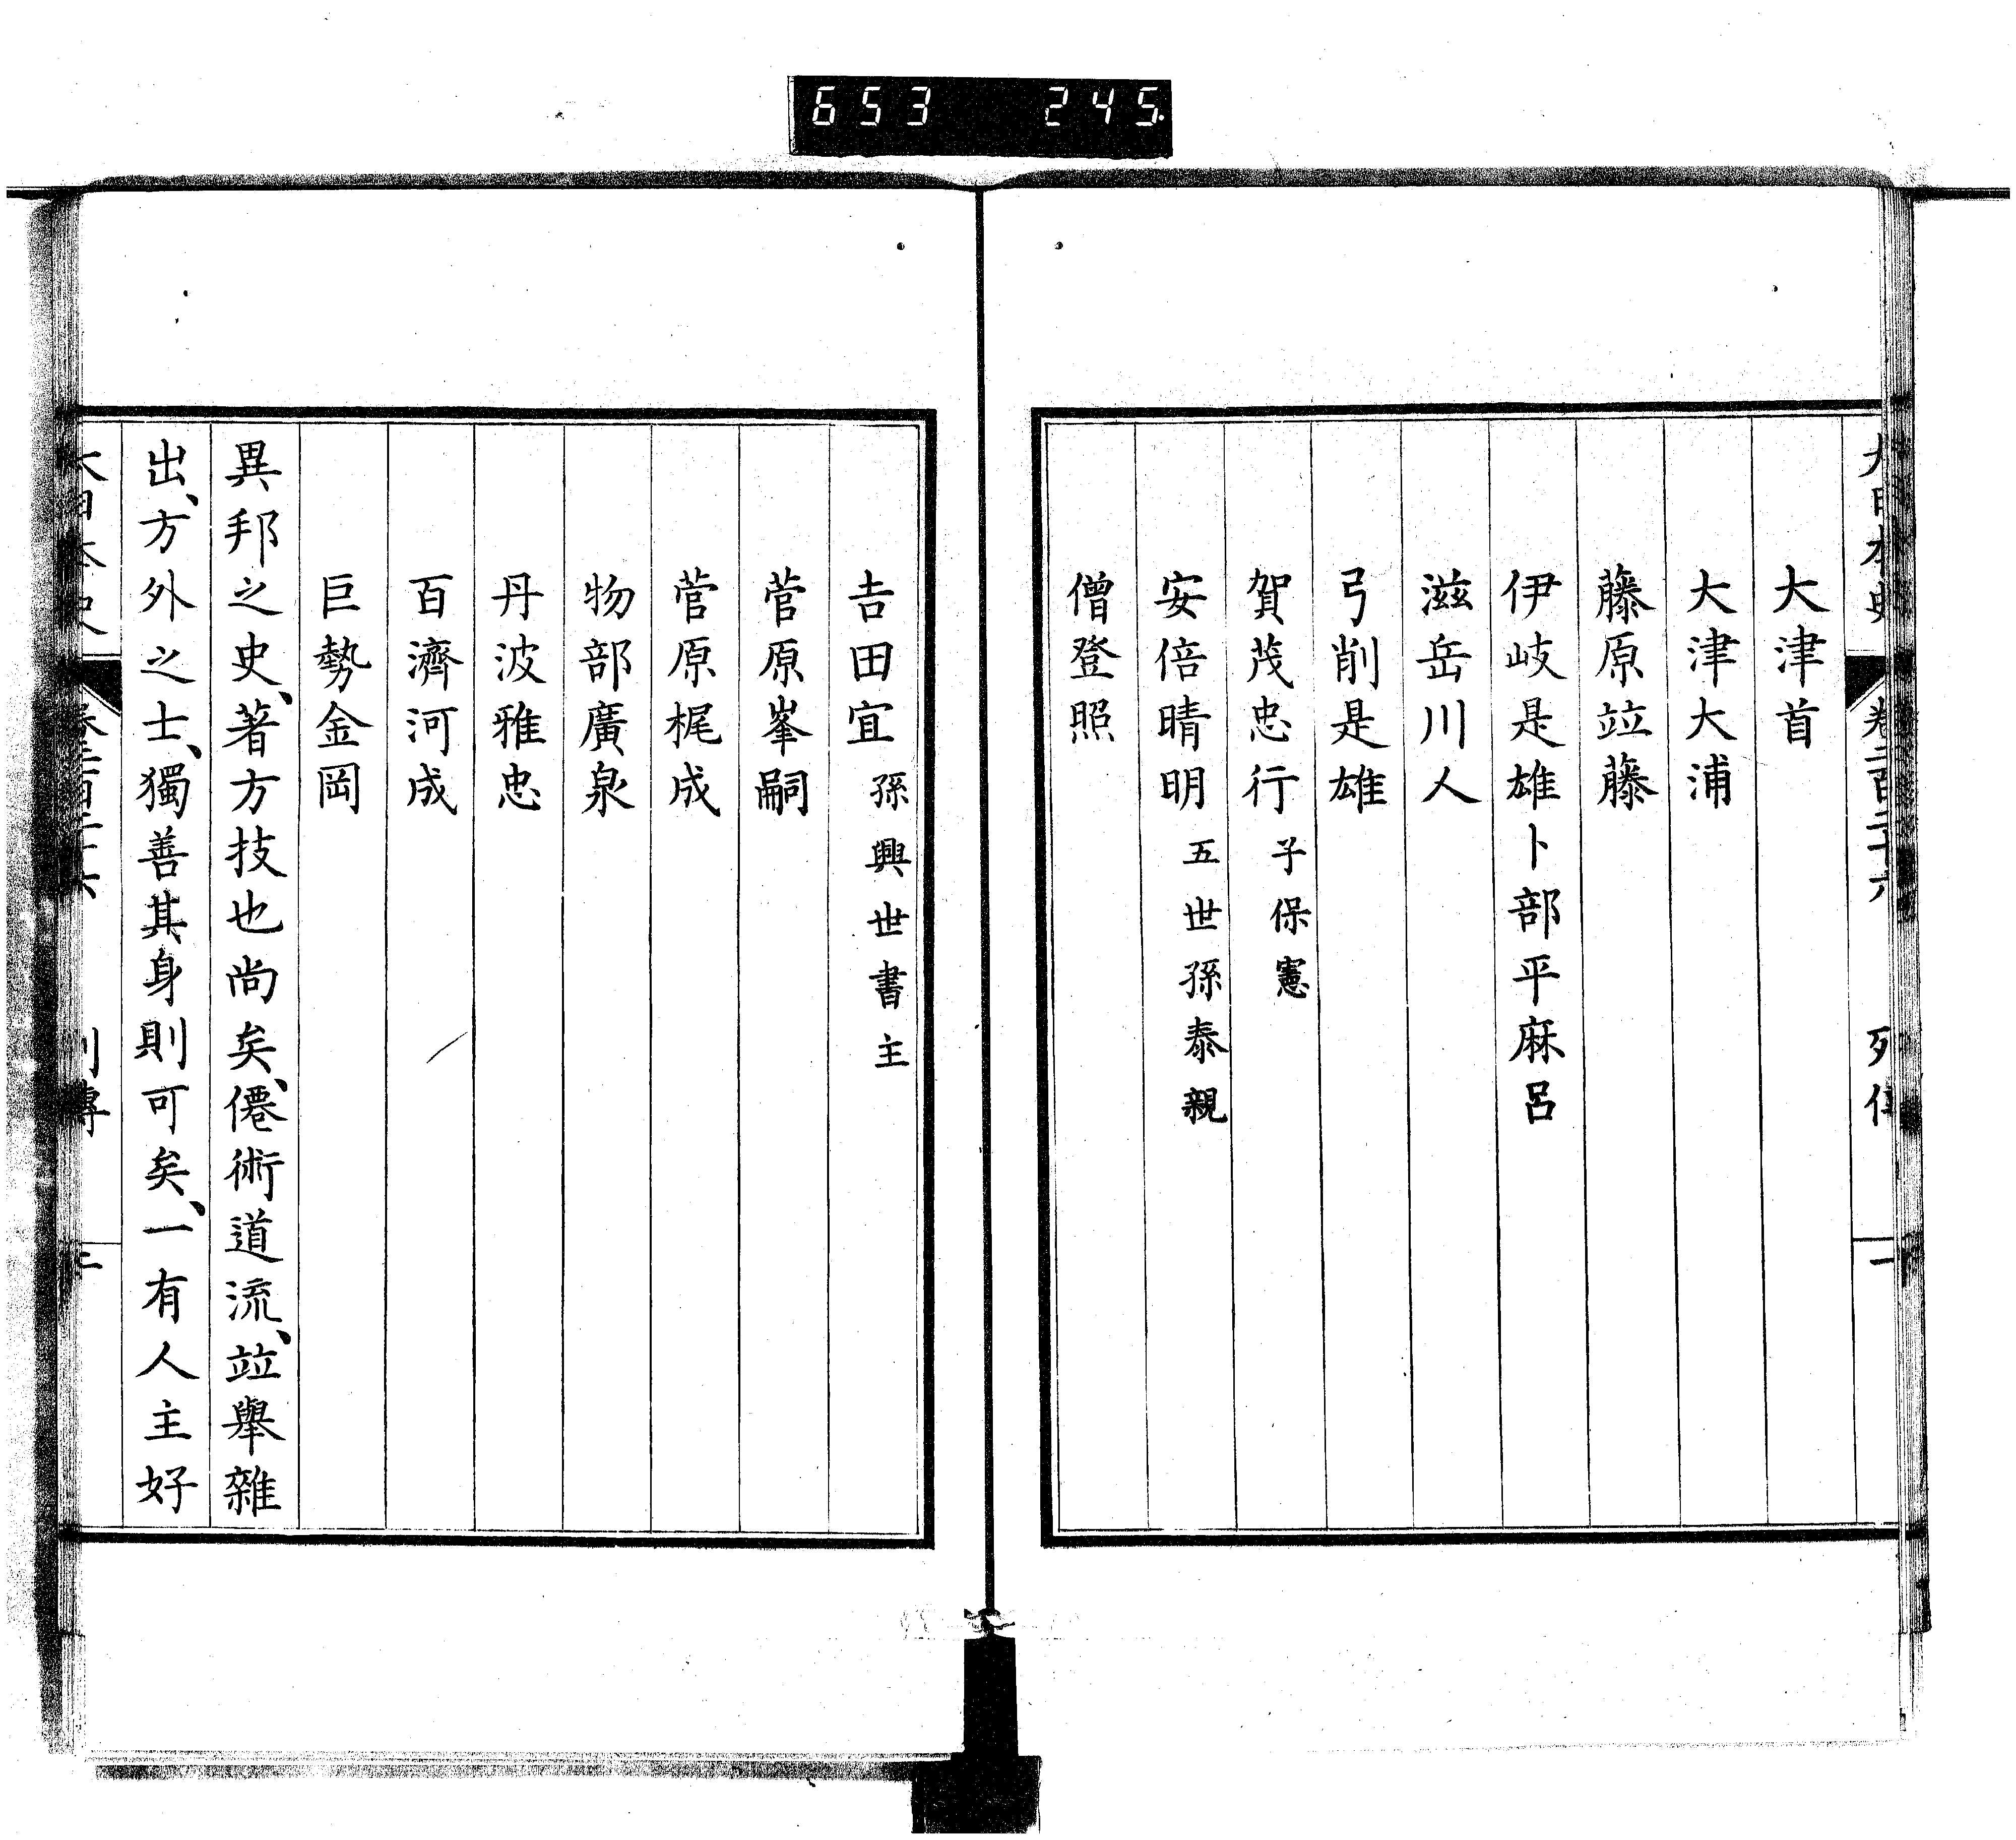 653 245
大日本史 卷二百二十六 列傳 一
大津首
大津大浦
藤原竝藤
伊岐是雄卜部平麻呂
滋岳川人
弓削是雄
賀茂忠行子保憲
安倍晴明五世孫泰親
僧登照
吉田宜孫興世書主
菅原峯嗣
菅原梶成
物部廣泉
丹波雅忠
百濟河成
巨勢金岡
異邦之史、著方技也尚矣、僊術道流、竝舉雜
出、方外之士、獨善其身則可矣、一有人主好
大日本史 卷二百二十六 列傳 二